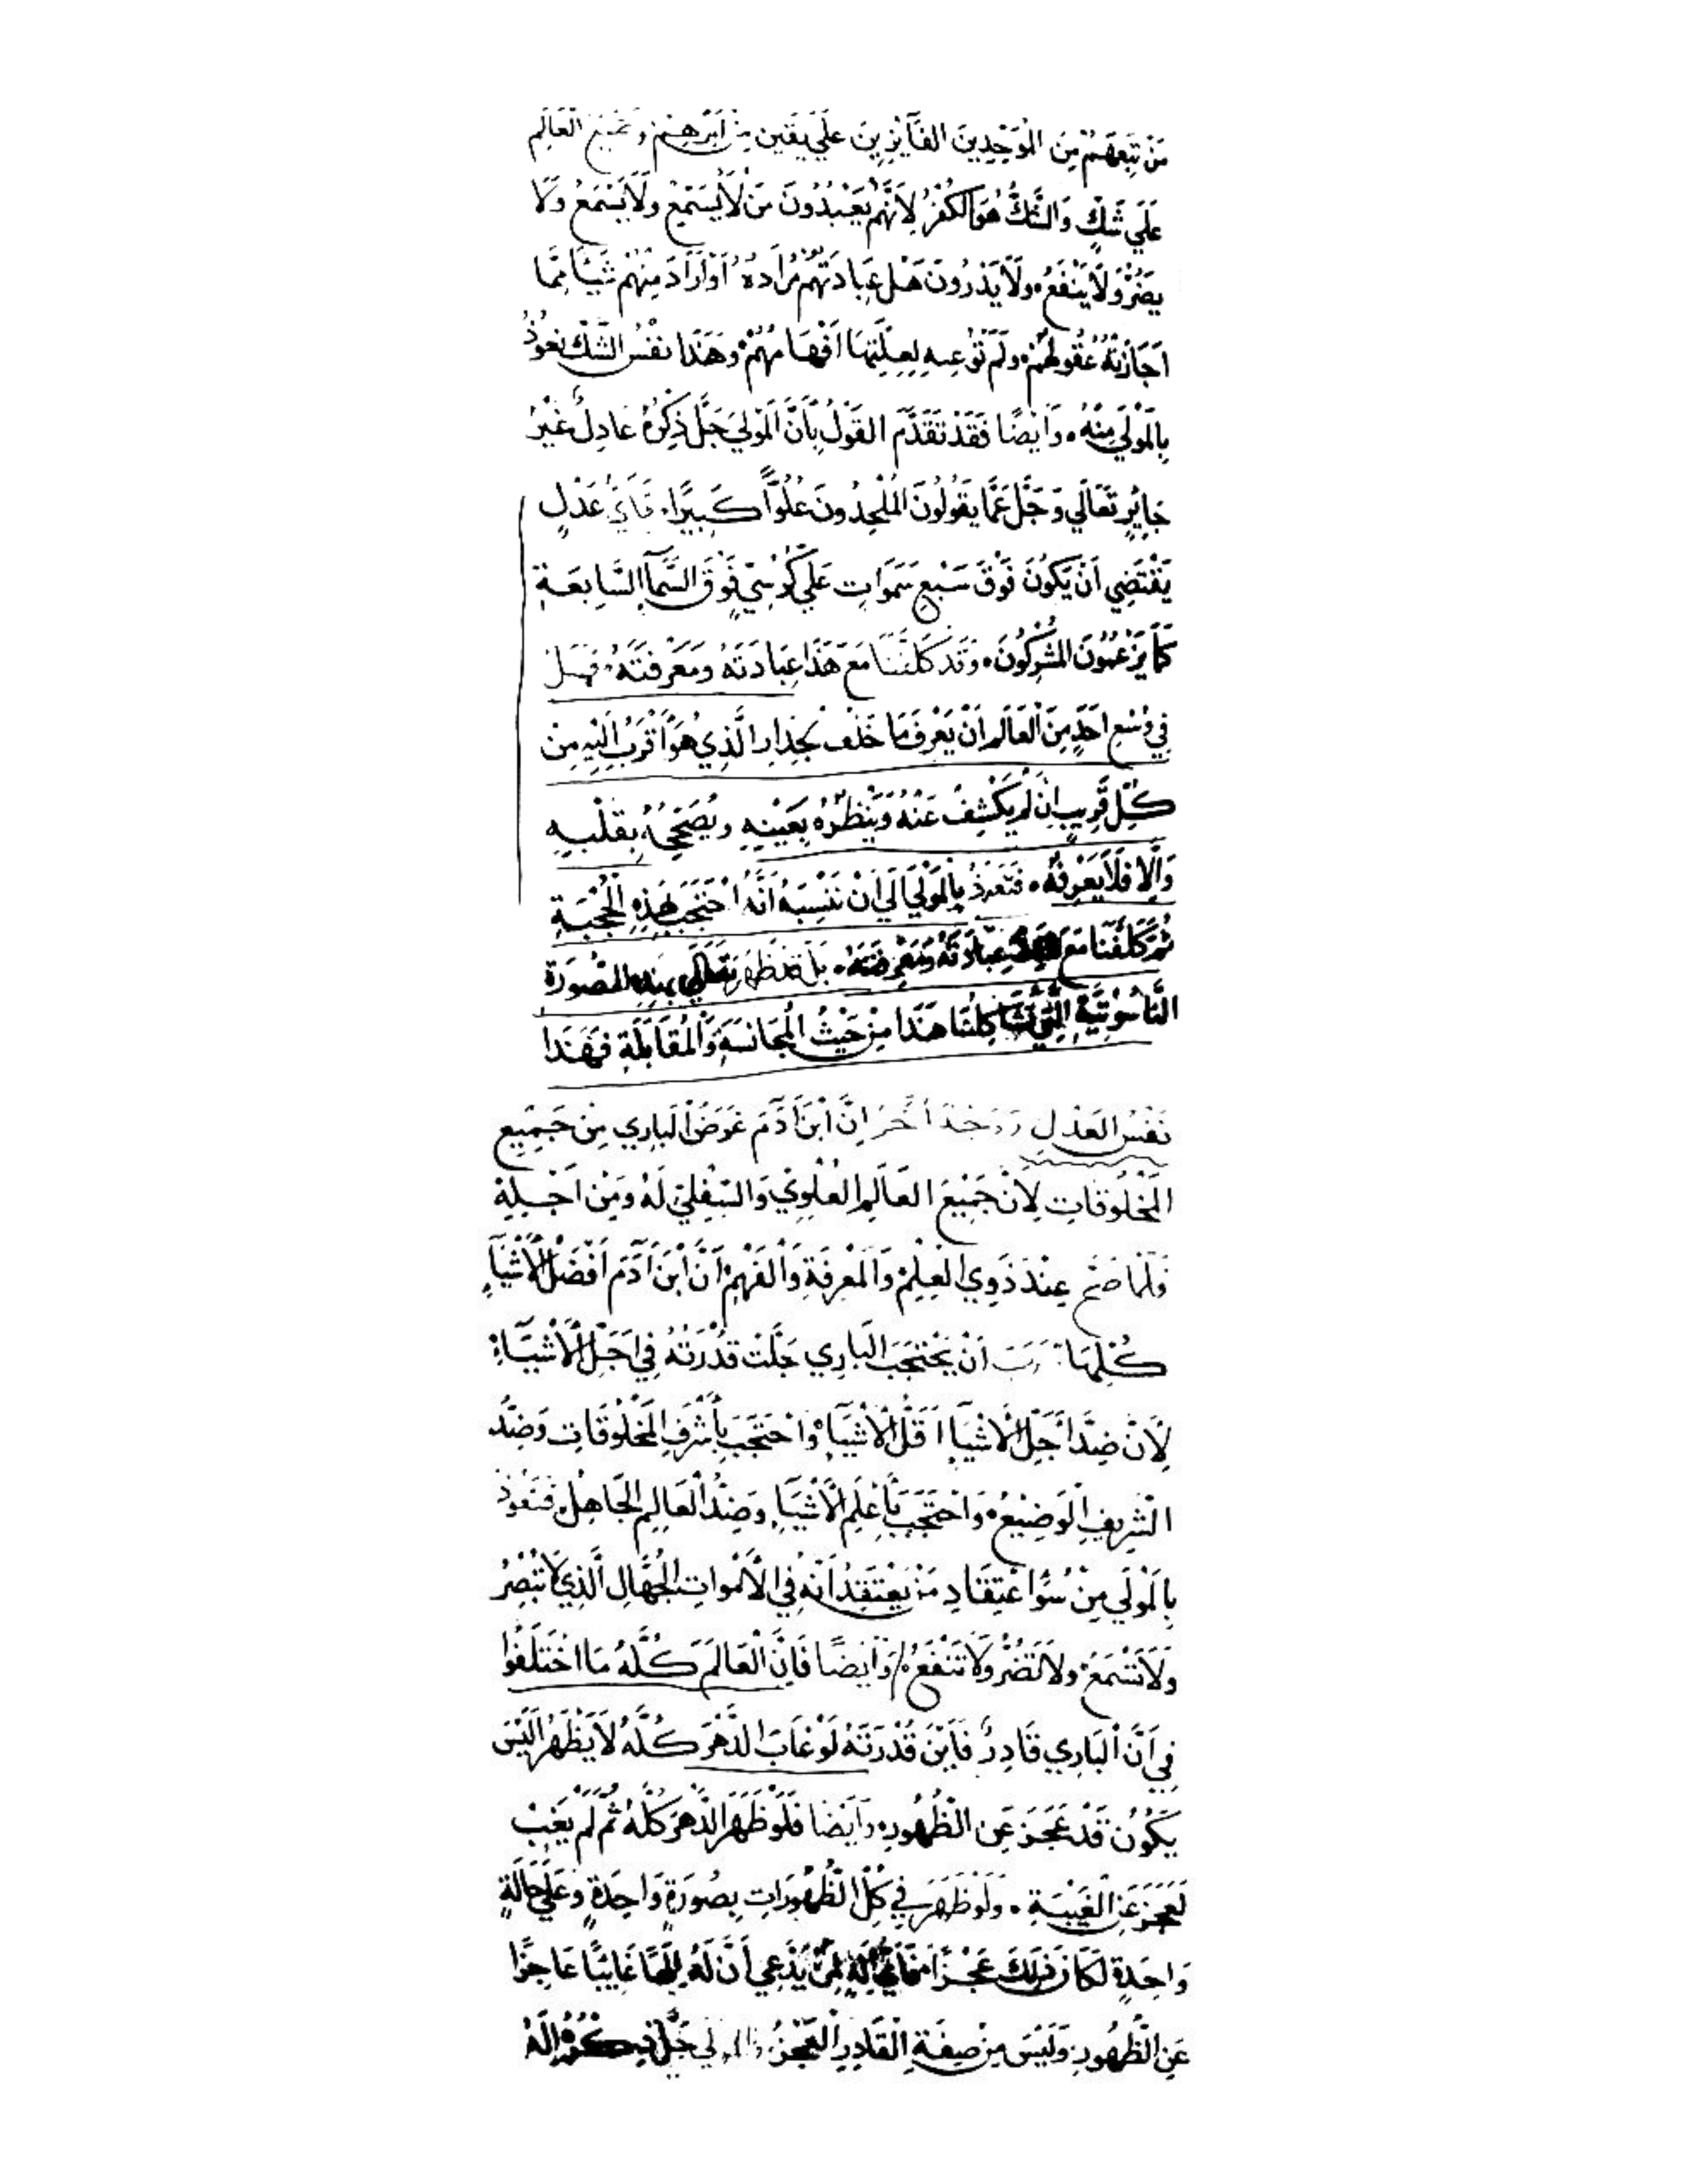 مَن تَبِعَهُمْ مِنَ المُوَحِّدِينَ الفَآيِزِينَ عَلَي يَقِين مِنْ أَمْرِهِمْ وَجَمِيعُ العَالَم
عَلَي شَكٍّ وَالشَّكُّ هُوَ الكُفْرُ لِأَنَّهُمْ يَعْبُدُونَ مَن لَا يُسْمِعُ وَلَا يَسْمَعُ وَلَا
يَضُرُّ وَلَا يَنْفَعُ وَلَا يَدْرُونَ هَلْ عِبَادَتَهُمْ مُرَادَهُ أَوْ أَرَادَ مِنْهُمْ شَيْئًا مِمَّا
اَجَازَتْهُ عُقُولُهُمْ وَلَمْ تُوعِيهِ لِعِلَّتِهَا اَفْهَامُهُمْ وَهَذَا نَفْسُ الشَّكِّ نَعُوذُ
بِالمَوْلَي مِنْهُ وَاَيْضًا فَقَدْ تَقَدَّمَ القَوْلُ بِأَنَّ المَوْلَي جَلَّ ذِكْرُهُ عَادِلٌ غَيْرُ
جَايِرٍ تَعَالَي وَجَلَّ عَمَّا يَقُولُونَ المُلْحِدُونَ عُلُوًّا كَبِيرًا فَايُّ عَدْلٍ
يَقْتَضِي اَنْ يَكُونَ فَوْقَ سَبْعِ سَمَوَاتٍ عَلَي كُرْسِيّ فَوْقَ السَّمَآ السَّابِعَةِ
كَمَا يَزْعَمُونَ المُشْرِكُونَ وَقَدْ كَلَّفَنَا مَعَ هَذَا عِبَادَتَهُ وَمَعْرِفَتَهُ فَهَلْ
فِي وُسْعِ اَحَدٍ مِنَ العَالَم اَنْ يَعْرِفَ مَا خَلْفَ الجِدَارِ الَّذِي هُوَ اَقْرَبُ اِلَيْهِ مِنْ
كُلِّ قَرِيبٍ اِنْ لَمْ يَكْشِفْ عَنْهُ وَيَنْظُرْهُ بِعَيْنِهِ وَيُصَحِّحْهُ بِقَلْبِهِ
وَاِلَّا فَلَا يَعْرِفُهُ فَنَعُوذُ بِالمَوْلَي اَنْ نَنْسِبَهُ اَنَّهُ احْتَجَبَ بِهَذِهِ الحُجْبَةِ
ثُمَّ كَلَّفَنَا مَعَ عِبَادَتَهُ وَمَعْرِفَتَهُ بَلْ قَدْ ظَهَرَ تَعَالَي بِهَذِهِ الصُّورَة
النَّاسُوتِيَّةِ الَّتِي تُشَاكِلُنَا هَذَا مِنْ حَيْثُ المُجَانَسَةِ وَالمُقَابَلَةِ فَهَذَا
نَفْسُ العَدْلِ وَوَجْهٌ آخَرُ اِنَّ ابْنَ اَدَمَ غَرَضُ البَارِي مِنْ جَمِيعِ
المَخْلُوقَاتِ لِاَنْ جَمِيعَ العَالَمِ العُلْوِيّ وَالسِّفْلِيّ لَهُ وَمِنْ اَجْلِهِ
فَلَمَّا صَحَّ عِنْدَ ذَوِي العِلْمِ وَالمَعْرِفَةِ وَالفَهْمِ اَنَّ ابْنَ آدَمَ اَفْضَلُ الأَشْيَآءِ
كُلِّهَا وَجَبَ اَنْ يَحْتَجِبَ البَارِي جَلَّتْ قُدْرَتُهُ فِي اَجَلِّ الأَشْيَآءِ
لِاَنْ ضِدَّ اَجَلِّ الأَشْيَآ اَقَلُّ الأَشْيَآءِ وَاحْتَجَبَ بِأَشْرَفِ المَخْلُوقَاتِ وَضِدُّ
الشَّرِيفِ الوَضِيعُ وَاحْتَجَبَ بِأَعْلَمِ الأَشْيَآءِ وَضِدُّ العَالِمِ الجَاهِلُ فَنَعُوذُ
بِالمَوْلَي مِنْ سُوءِ اعْتِقَادِ مَنْ يَعْتَقِدُ اَنَّهُ فِي الأَمْوَاتِ الجُهَّالِ الَّذِي لَا تُبْصِرُ
وَلَا تَسْمَعُ وَلَا تَضُرُّ وَلَا تَنْفَعُ وَاَيْضًا فَاِنَّ العَالَمَ كُلَّهُ مَا اخْتَلَفُوا
فِي اَنَّ البَارِي قَادِرٌ فَأَيْنَ قُدْرَتَهُ لَوْ غَابَ الدَّهْرَ كُلَّهُ لَا يَظْهَرُ اَلَيْسَ
يَكُونُ قَدْ عَجَزَ عَنِ الظُّهُورِ وَاَيْضًا فَلَوْ ظَهَرَ الدَّهْرَ كُلَّهُ ثُمَّ لَمْ يَغِبْ
لَعَجَزَ عَنِ الغَيْبَةِ وَلَوْ ظَهَرَ فِي كُلِّ الظُّهُورَاتِ بِصُورَةٍ وَاحِدَةٍ وَعَلَي حَالَةٍ
وَاحِدَةٍ لَكَانَ ذَلِكَ عَجْزًا يَدَّعِي اَنَّ لَهُ اِلَهًا غَايِبًا عَاجِزًا
عَنِ الظُّهُورِ وَلَيْسَ مِنْ صِفَةِ القَادِرِ العَجْزُ جَلَّ ذِكْرُهُ اِلَهُ